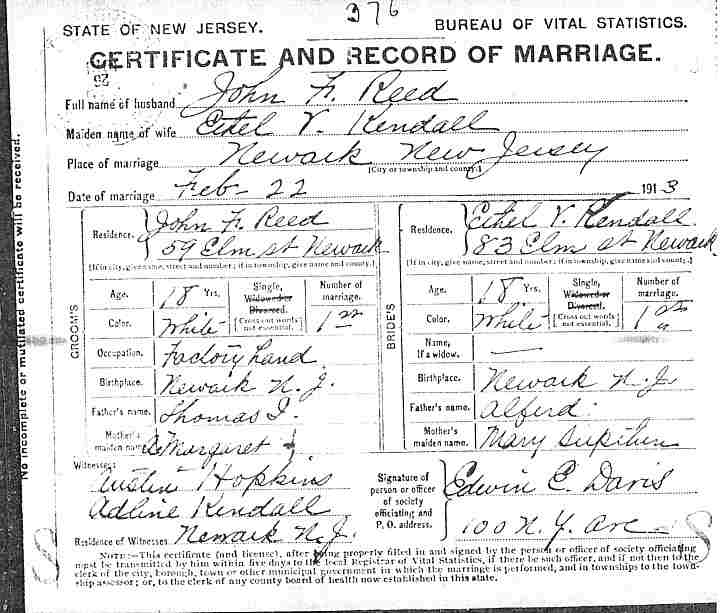 376
STATE OF NEW JERSEY. BUREAU OF VITAL STATISTICS.
CERTIFICATE AND RECORD OF MARRIAGE.
Full name of husband John F. Reed
Maiden name of wife Ethel V. Kendall
Place of marriage Newark New Jersey
[City or township and county.]
Date of marriage Feb- 22 1913
GROOM'S
Residence. John F. Reed
59 Elm st Newark
[If in city, give name, street and number; if in township, give name and county.]
Age. 18 Yrs. Single, Widowed or Divorced. Number of marriage.
Color. White [Cross out words not essential.] 1st
Occupation. Factory hand
Birthplace. Newark N. J.
Father's name. Thomas
Mother's maiden name Margaret
BRIDE'S
Residence. Ethel V. Kendall
83 Elm st Newark
[If in city, give name, street and number; if in township, give name and county.]
Age. 18 Yrs. Single, Widowed or Divorced. Number of marriage.
Color. White [Cross out words not essential.] 1st
Name, If a widow. —
Birthplace. Newark N. J.
Father's name. Alferd
Mother's maiden name. Mary
Witnesses: Austin Hopkins
Adline Kendall
Residence of Witnesses Newark N. J.
Signature of person or officer of society officiating and P. O. address. Edwin C. Davis
100 N. Y. Ave
NOTE:—This certificate (and license), after being properly filled in and signed by the person or officer of society officiating
must be transmitted by him within five days to the local Registrar of Vital Statistics, if there be such officer, and if not then to the
clerk of the city, borough, town or other municipal government in which the marriage is performed, and in townships to the town-
ship assessor; or, to the clerk of any county board of health now established in this state.
No incomplete or mutilated certificate will be received.